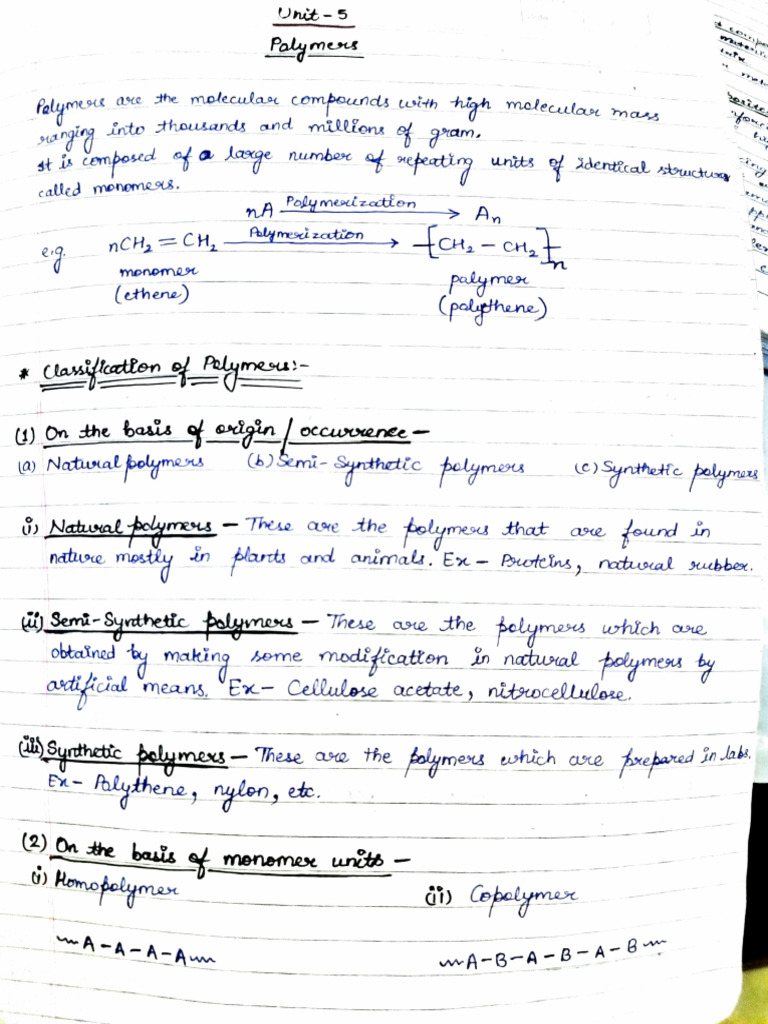 Unit - 5
Polymers
Polymers are the molecular compounds with high molecular mass
ranging into thousands and millions of gram.
It is composed of a large number of repeating units of identical structure
called monomers.
nA Polymerization → An
e.g. nCH₂ = CH₂ Polymerization → -[CH₂ - CH₂]-n
monomer polymer
(ethene) (polythene)
* Classification of Polymers:-
(1) On the basis of origin / occurrence -
(a) Natural polymers (b) Semi-Synthetic polymers (c) Synthetic polymers
(i) Natural polymers - These are the polymers that are found in
nature mostly in plants and animals. Ex - Proteins, natural rubber.
(ii) Semi-Synthetic polymers - These are the polymers which are
obtained by making some modification in natural polymers by
artificial means. Ex - Cellulose acetate, nitrocellulose.
(iii) Synthetic polymers - These are the polymers which are prepared in labs.
Ex - Polythene, nylon, etc.
(2) On the basis of monomer units -
(i) Homopolymer (ii) Copolymer
~A-A-A-A~ ~A-B-A-B-A-B~